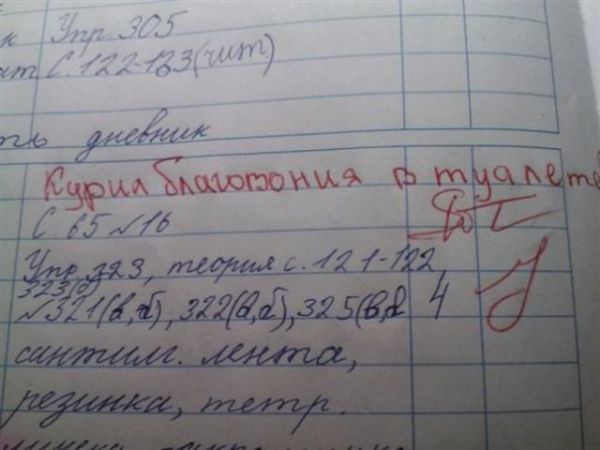 Упр. 305
С. 122-123(чит)
дневник
Курил благовония в туалете
С. 65 №16
Упр. 323, теория с. 121-122,
323(б)
№321(в,г), 322(а,б), 325(в, 4
сантим. лента,
резинка, тетр.